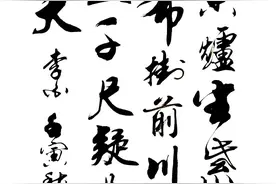 爐生紫
布掛前川
千尺疑
天 李白 壬寅秋